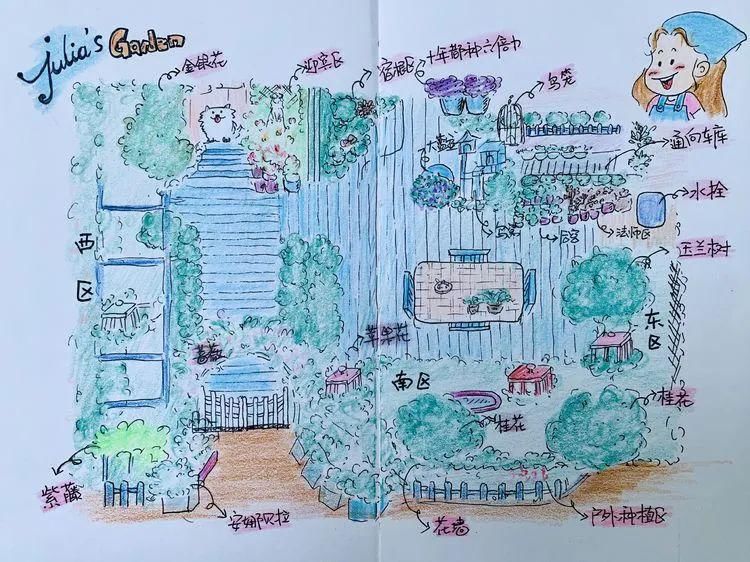 Julia's Garden
金银花
迎宾区
宿根区
十年都种六倍力
鸟笼
通向车库
大蓝
鸟
法师区
水栓
玉兰树
西区
东区
蔷薇
苹果花
南区
桂花
桂花
紫藤
安娜贝拉
花墙
户外种植区